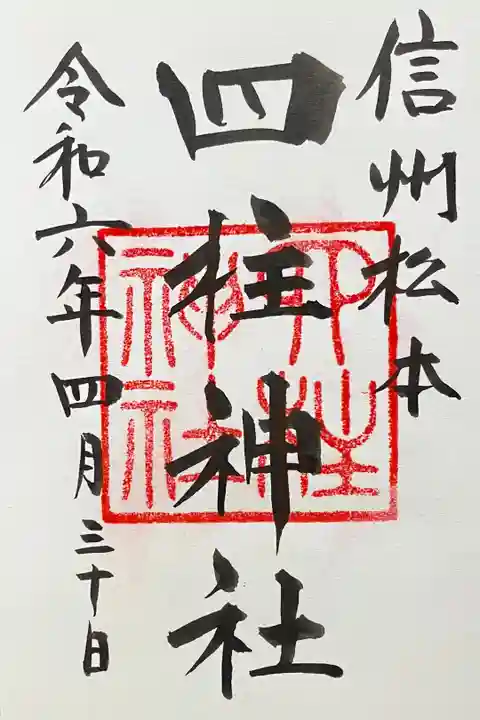 信州松本
四柱神社
令和六年四月三十日
四柱
神社